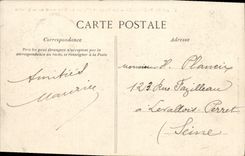 CARTE POSTALE
Correspondance
Tous les pays étrangers n'acceptent pas
la correspondance au recto, se renseigner à la Poste
Adresse
Amitiés
Maurice
Monsieur H. Plancix
123 Rue Fazilleau
a Levallois-Perret
(Seine)